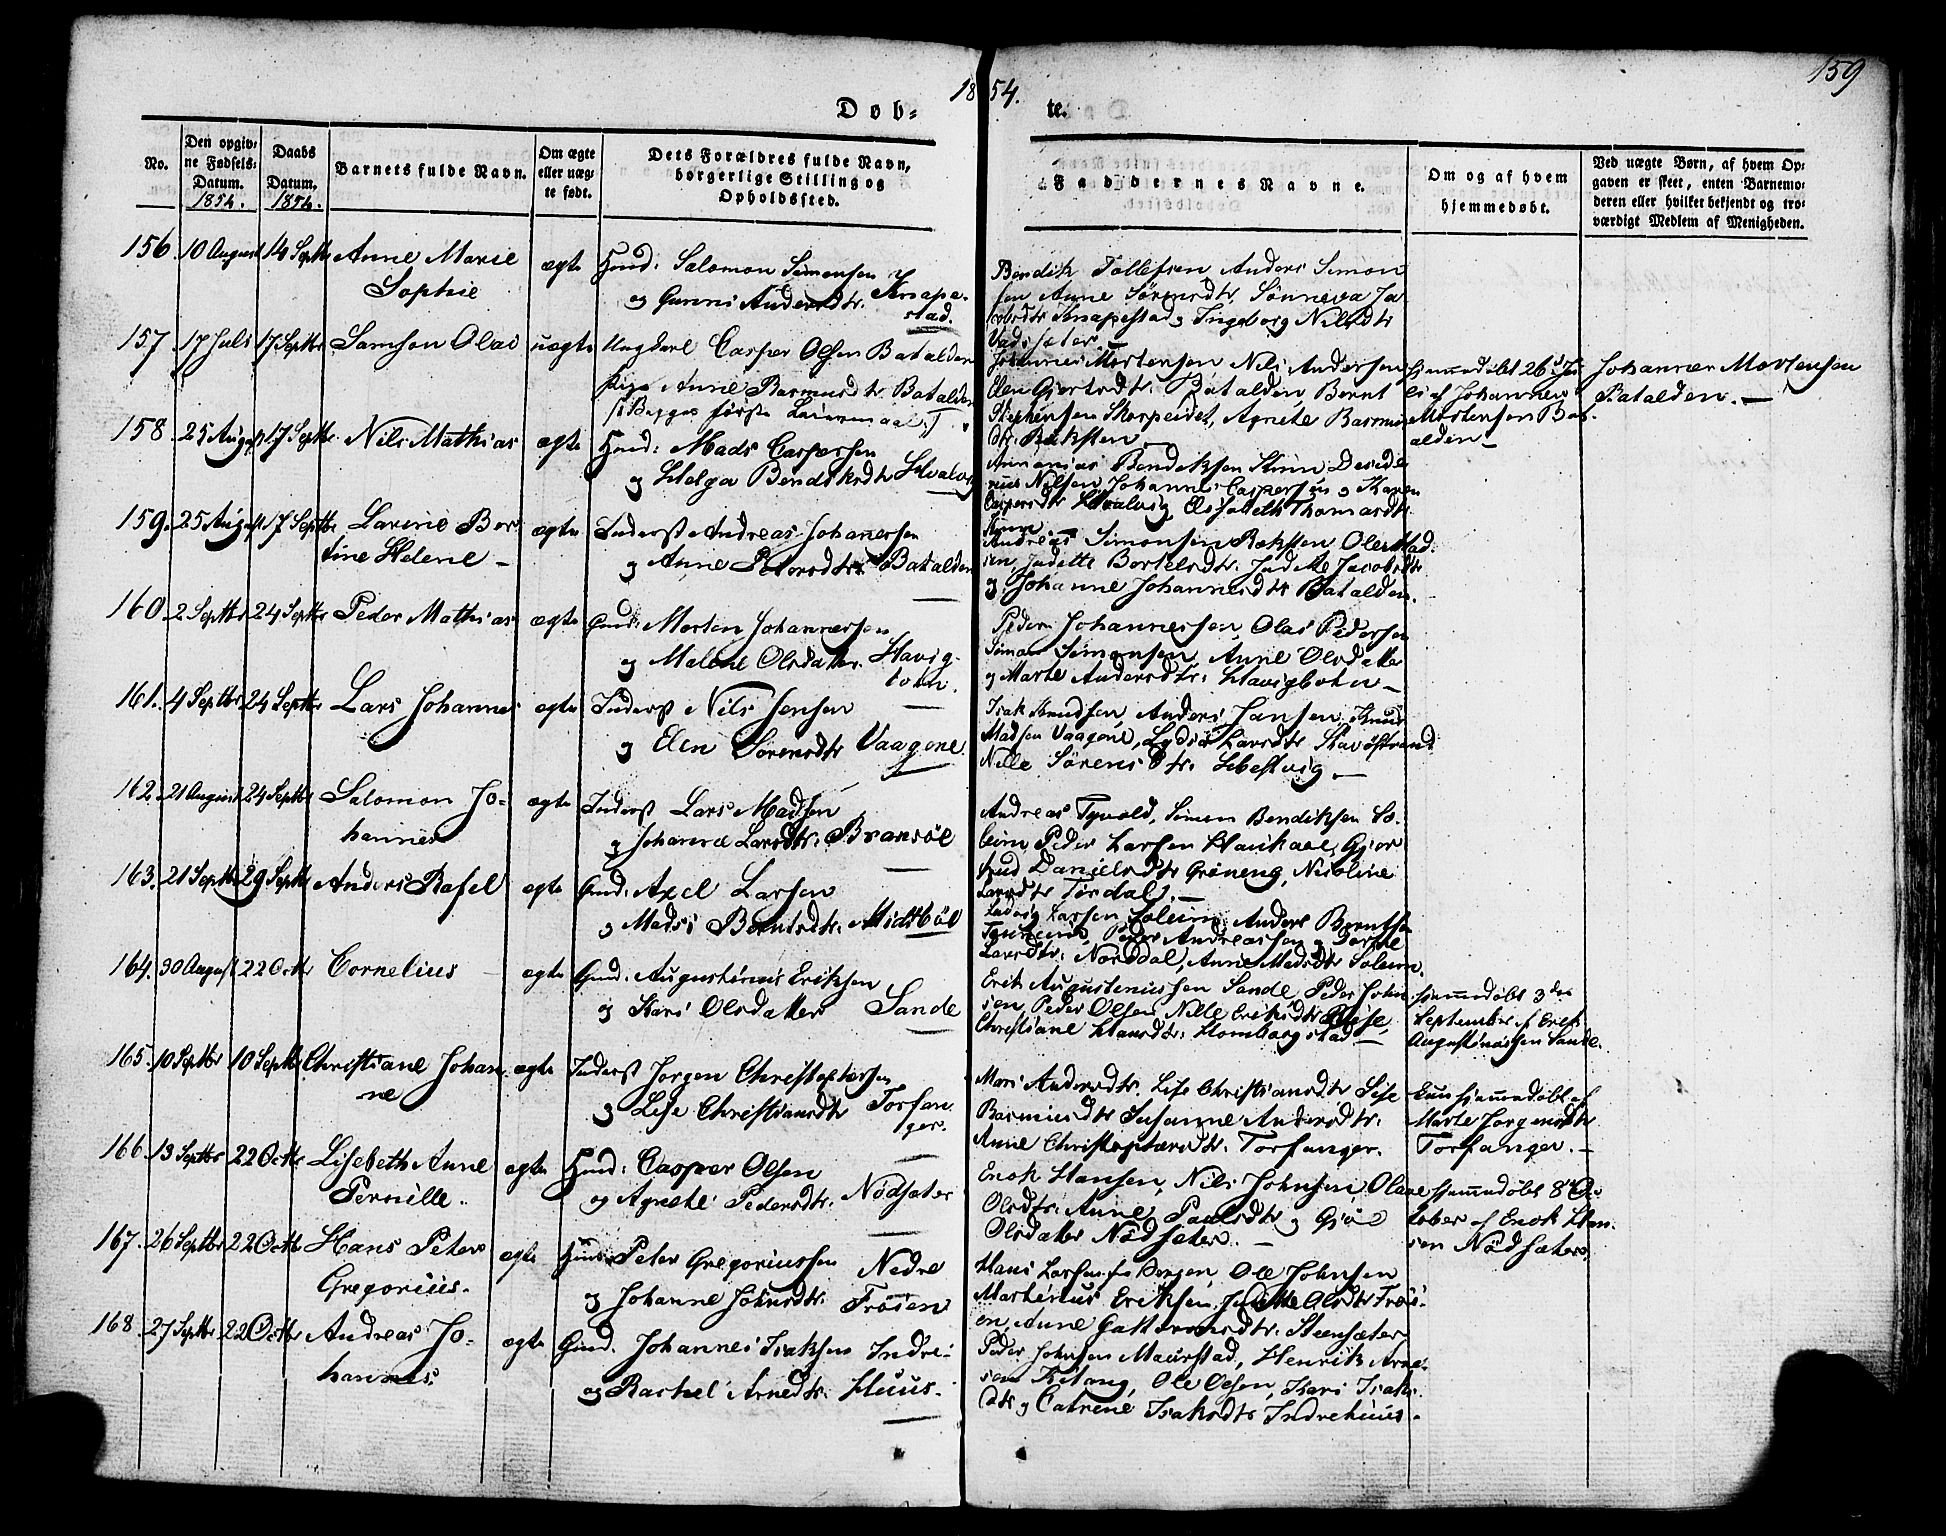 159
1854.
Døb- te.
No.
Den opgiv-
ne Fødsels-
Datum.
1854.
Daabs
Datum.
1854.
Barnets fulde Navn.
Om ægte
eller uæg-
te født.
Dets Forældres fulde Navn,
borgerlige Stilling og
Opholdssted.
Faddernes Navne.
Om og af hvem
hjemmedøbt.
Ved uægte Børn, af hvem Op-
gaven er skeet, enten Barnemo-
deren eller hvilket bekjendt og tro-
værdigt Medlem af Menigheden.
156 10 August 14 Septbr Anne Marie
Sophie
ægte
Huud: Salomon Simonsen
og Gunni Andersdtr. Knape-
stad.
Bendik Tollefsen, Anders Simon
sen Anne Sørensdtr, Sønneva Ja
cobsdtr Knapestad og Ingeborg Nilsdtr
Vadsæter.
157. 17 Juli 17 Septbr Samson Olai
uægte
Ungkarl Casper Olsen Batalden
Pige Anne Rasmusdtr Batalden
(Begges første Leiermaal)
Johannes Mortensen Nils Andersen
Elen Gjertsdtr. Batalden Bernt
Stephensen Skorpeidet, Agnete Rasmus
dtr. Ræksten
hjemmedøbt 26 Ju
li af Johannes
Mortensen Bat
alden
Johannes Mortensen
Batalden.
158. 25 August 17 Septbr. Nils Mathias
ægte
Huud: Mads Caspersen
og Helga Bendiksdtr Hvalvig
Annanias Bendiksen Kinn Deside
rius Nilsen, Johannes Caspersen og Karen
Caspersdtr Hvalvig, Elisabeth Thomasdtr
Kinn
159. 25 August 17 Septbr Lavine Ber
tine Helene
ægte
Inderst Andreas Johanesen
og Anne Pedersdtr Batalden
Andreas Simonsen Ræksten Ole Mad
sen, Judette Bertelsdtr. Juditte Jacobsdtr
og Johanne Johannesdtr Batalden.
160. 2 Septbr 24 Septbr Peder Mathias
ægte
Gmd: Morten Johannessen
og Malene Olsdatter Havig-
botn.
Peder Johannessen, Olai Pedersen
Simon Simonsen, Anne Olsdatter
og Marte Andersdtr: Havigbotn
161. 4 Septbr 24 Septbr Lars Johannes
ægte
Inderst Nils Jensen
og Elen Sørensdtr Vaagene
Isak Knudsen, Anders Jansen, Knud
Madsen Vaagene, Lydia Larsdtr Skavøstrand
Nille Sørensdtr. Hestvig
162. 21 August 24 Septbr Salomon Jo-
hannes
ægte
Inderst Lars Madsen
og Johanne Larsdtr: Bransøl
Andreas Tyvold, Simen Bendiksen So-
leim Peder Larsen Haukaae, Gjer
trud Danielsdtr Grøneng, Nicoline
Larsdtr Tørdal.
163. 21 Septbr 29 Septbr Anders Rasel
ægte
Gmd: Axel Larsen
og Madsi Berntsdtr: Midtbøl
Ludvig Larsen Soleim, Anders Berntsen
Peder Andreassen og Dorthe
Larsdtr: Norddal, Anne Madsdtr Soleim.
164. 30 August 22 Octbr Cornelius
ægte
Gmd: Augustinus Eriksen
og Kari Olsdatter Sande
Erik Augustinussen Sande Peder John
sen, Peder Olsen, Nille Eriksdtr
Christiane Hansdtr: Hornborgstad
hjemmedøbt 3die
September af Erik
Augustinussen Sande.
165. 10 Septbr 10 Septbr Christiane Johan
ne
ægte
Inderst Jørgen Christophersen
og Lise Christiansdtr Torfan-
ger.
Mari Andersdtr. Lise Christiansdtr Lise
Rasmusdtr Susanne Andersdtr.
Anne Christophersdtr. Torfanger.
Kun hjemmedøbt af
Marte Jørgensdtr
Torfanger.
166. 13 Septbr 22 Octbr Lisebeth Anne
Pernille.
ægte
Huud: Casper Olsen
og Agnete Pedersdtr. Nødsæter
Enok Hansen, Nils Johnsen, Olave
Olsdtr: Anne Paulsdtr og Gjø
Olsdatter Nødsæter.
hjemmedøbt 8de Oc
tober af Enok Han-
sen Nødsæter.
167. 26 Septbr 22 Octbr Hans Peter
Gregorius.
ægte
Huud: Peter Gregoriussen Nedre
og Johanne Johnsdtr: Frøsen
Hans Larsen fra Bergen, Ole Johnsen
Mathinius Eriksen, Juditte Olsdtr Frøs-
en, Anne Guttormsdtr. Steensæter.
168. 27 Septbr 22 Octbr Andreas Jo-
hannes.
ægte
Gmd. Johannes Isaksen Indre-
og Rachel Arnedtr. Huus.
Peder Johnsen Maurstad, Henrik Arne-
sen Kitang, Ole Olsen, Kari Isaks-
dtr og Catrene Isaksdtr Indrehuus.